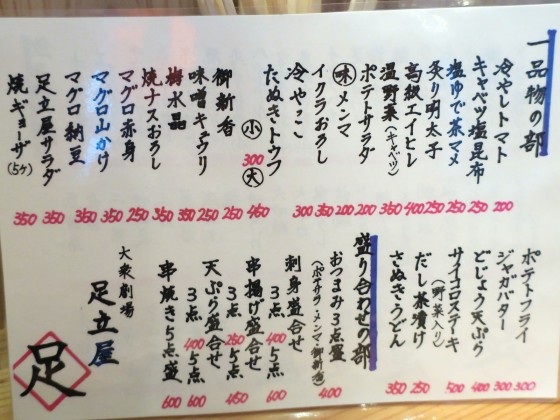 一品物の部
冷やしトマト 200
キャベツ塩昆布 250
塩ゆで茶マメ 250
炙り明太子 250
高級エイヒレ 400
温野菜(キャベツ) 350
ポテトサラダ 200
味メンマ 200
イクラおろし 350
冷やっこ 300
たぬきトウフ 小 300 大 450
御新香 250
味噌キュウリ 250
梅水晶 350
焼ナスおろし 350
マグロ赤身 250
マグロ山かけ 350
マグロ納豆 350
足立屋サラダ 350
焼ギョーザ(5ヶ) 350
ポテトフライ 300
ジャガバター 300
どじょう天ぷら 400
サイコロステーキ(野菜入り) 500
だし茶漬け 250
さぬきうどん 350
盛り合わせの部
おつまみ3点盛 400
(ポテサラ・メンマ・御新香)
刺身盛合せ
3点 400 5点 600
串揚げ盛合せ
3点 250 5点 450
天ぷら盛合せ
3点 400 5点 600
串焼き5点盛 600
大衆劇場
足立屋
足